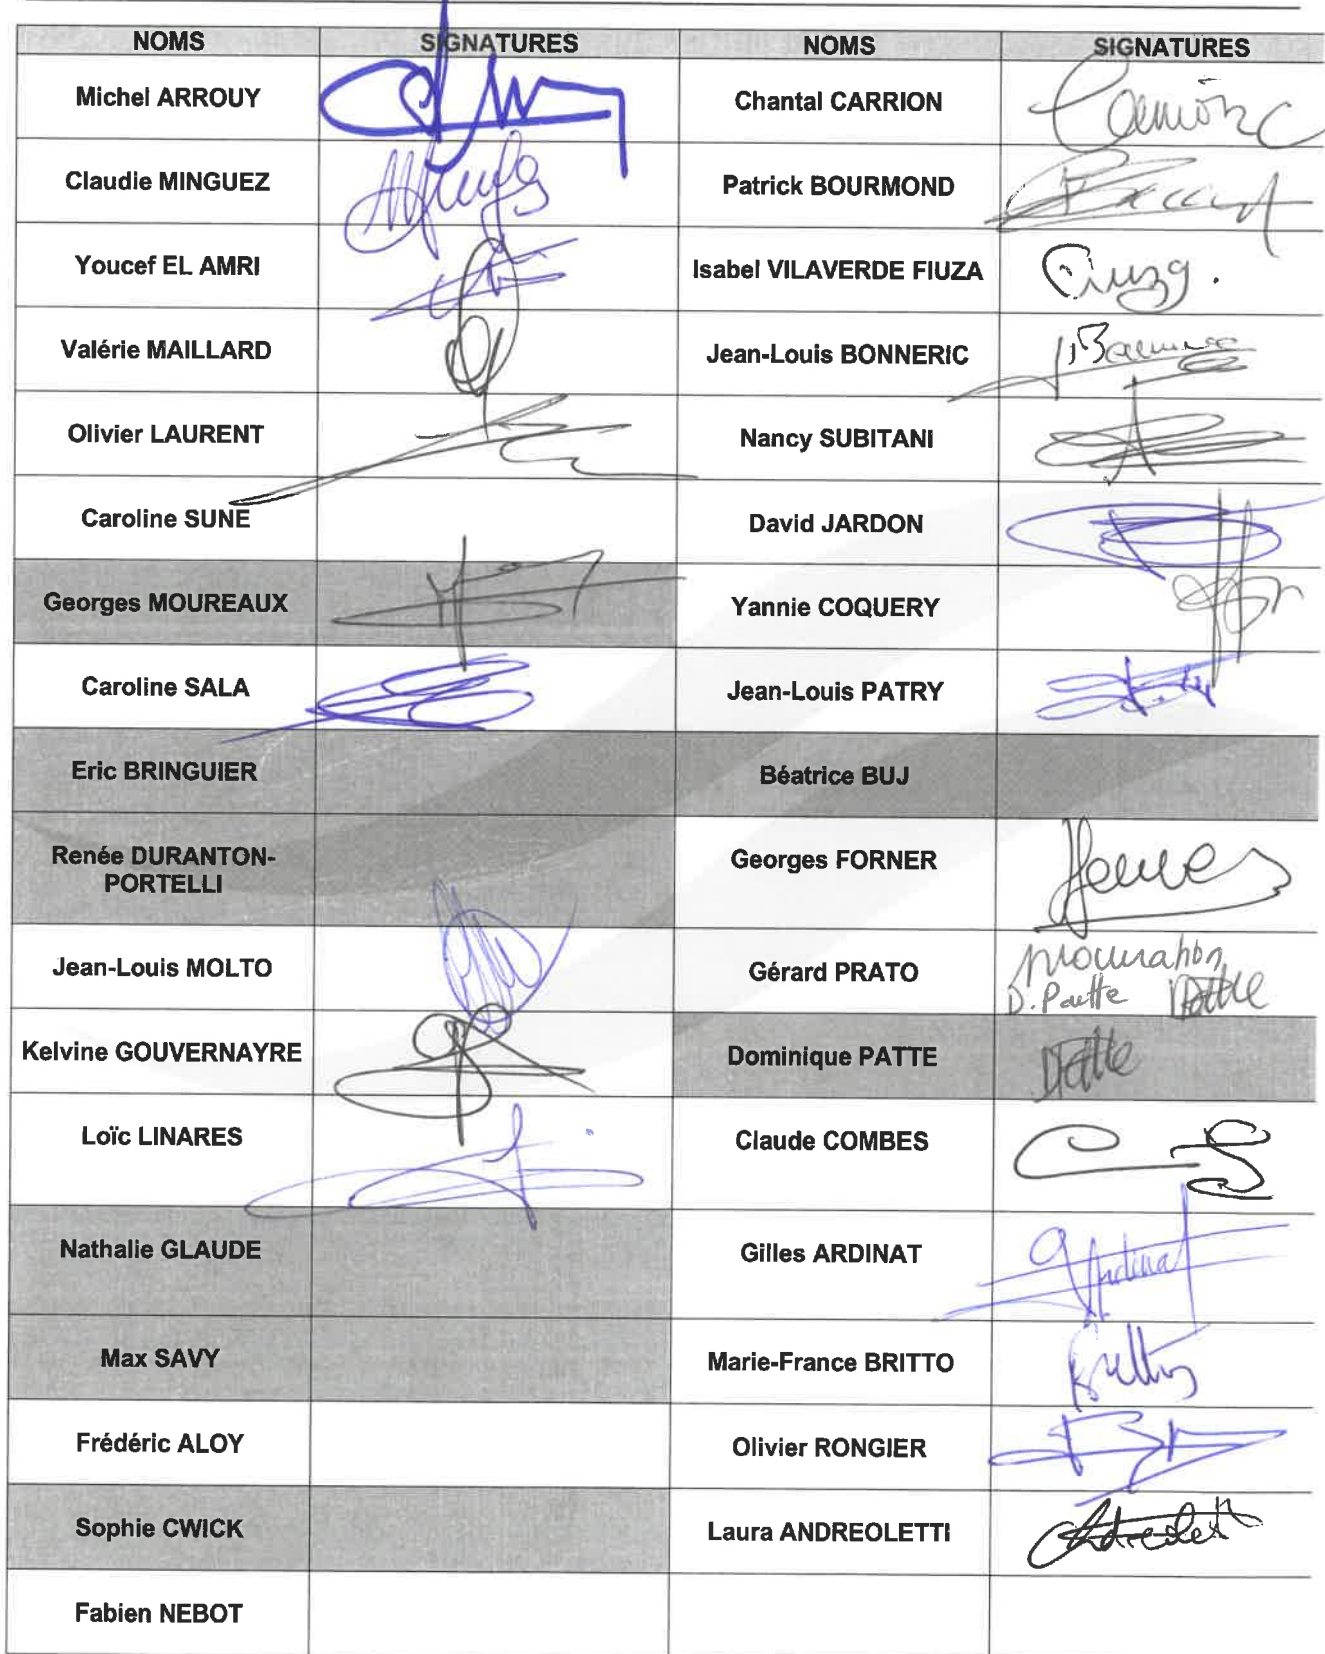 NOMS SIGNATURES NOMS SIGNATURES
Michel ARROUY Chantal CARRION
Claudie MINGUEZ Patrick BOURMOND
Youcef EL AMRI Isabel VILAVERDE FIUZA Fiuza.
Valérie MAILLARD Jean-Louis BONNERIC
Olivier LAURENT Nancy SUBITANI
Caroline SUNE David JARDON
Georges MOUREAUX Yannie COQUERY
Caroline SALA Jean-Louis PATRY
Eric BRINGUIER Béatrice BUJ
Renée DURANTON-
PORTELLI
Georges FORNER
Jean-Louis MOLTO Gérard PRATO procuration
D. Patte Patte
Kelvine GOUVERNAYRE Dominique PATTE Patte
Loïc LINARES Claude COMBES
Nathalie GLAUDE Gilles ARDINAT Ardinat
Max SAVY Marie-France BRITTO Britto
Frédéric ALOY Olivier RONGIER
Sophie CWICK Laura ANDREOLETTI
Fabien NEBOT